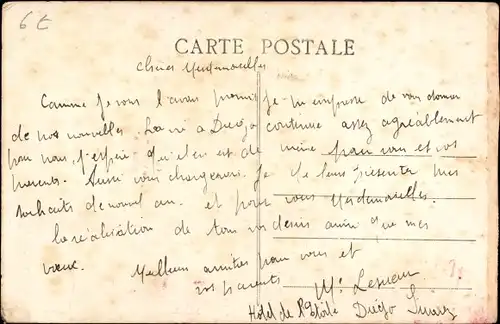 6 €
CARTE POSTALE
Chères Mesdemoiselles
Comme je vous l'avais promis je m'empresse de vous donner
de nos nouvelles. La vie a Diégo continue assez agréablement
pour nous, j'espère qu'il en est de même pour vous et vos
parents. Aussi vous chargerai je de leur présenter mes
souhaits de nouvel an. et pour vous Mesdemoiselles.
la réalisation de tous vos désirs ainsi que mes
vœux. Meilleures amitiés pour vous et
vos parents
Hôtel de l'Etoile Diégo Suarez